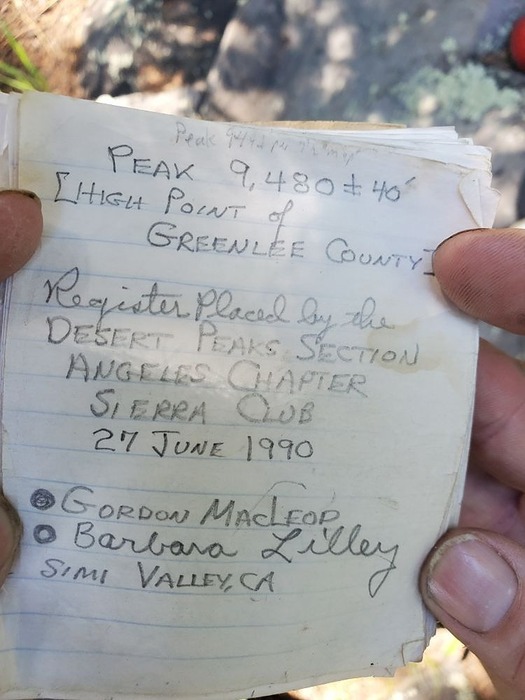 Peak
PEAK 9,480 ± 40'
[HIGH POINT of
GREENLEE COUNTY]
Register Placed by the
DESERT PEAKS SECTION
ANGELES CHAPTER
SIERRA CLUB
27 JUNE 1990
GORDON MACLEOD
Barbara Lilley
SIMI VALLEY, CA